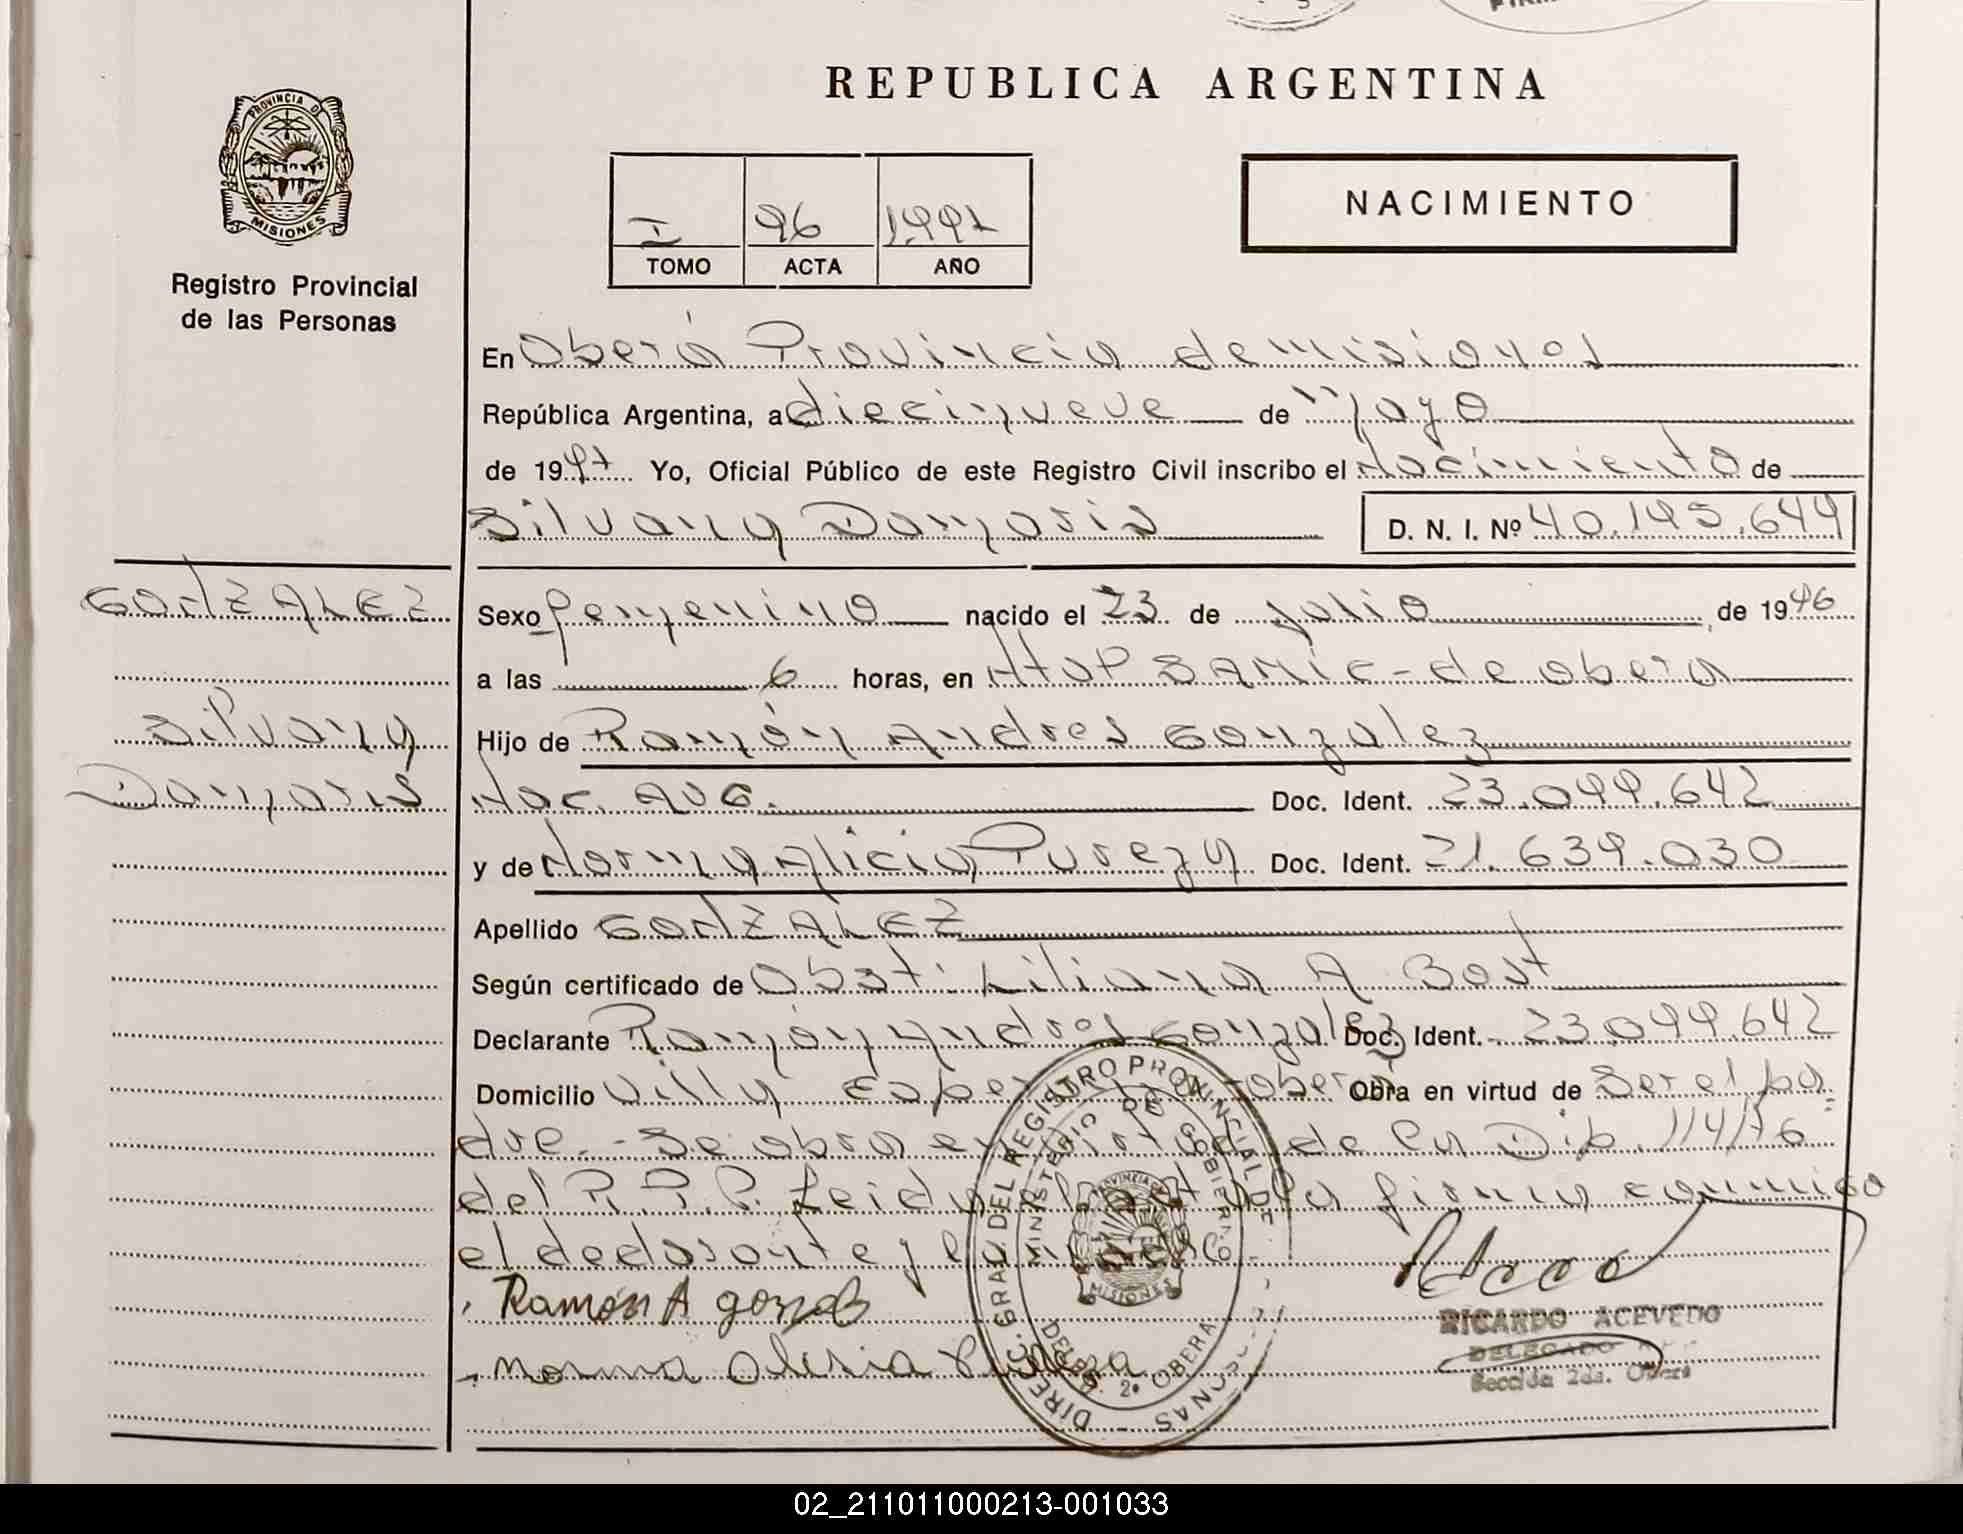 REPUBLICA ARGENTINA
PROVINCIA DE
MISIONES
Registro Provincial
de las Personas
I 96 1997
TOMO ACTA AÑO
NACIMIENTO
En Oberá Provincia de misiones
República Argentina, a diecinueve de mayo
de 1997 Yo, Oficial Público de este Registro Civil inscribo el Nacimiento de
Silvana Damaris D. N. I. Nº 40.195.644
GONZALEZ
Silvana
Damaris
Sexo femenino nacido el 23 de Julio de 1996
a las 6 horas, en Hosp SAMIC - de obera
Hijo de Ramón Andres Gonzalez
Nac. ARG. Doc. Ident. 23.099.642
y de Norma Alicia Pureza Doc. Ident. 21.639.030
Apellido GONZALEZ
Según certificado de Obst: Liliana A. Bost
Declarante Ramón Andres Gonzalez Doc. Ident. 23.099.642
Domicilio Villa Oberá Obra en virtud de Ser el pa
dre.- Se obra en virtud de la Dip. 114/76
del R. P. P. Leida el acta la firma conmigo
el declarante y la madre.-
Ramón A gonzalez
Norma Alicia Pureza
RICARDO ACEVEDO
DELEGADO
Sección 2da. Oberá
DIREC. GRAL. DEL REGISTRO PROVINCIAL DE PERSONAS
MINISTERIO DE GOBIERNO
PROVINCIA DE
MISIONES
2ª OBERA
02_211011000213-001033